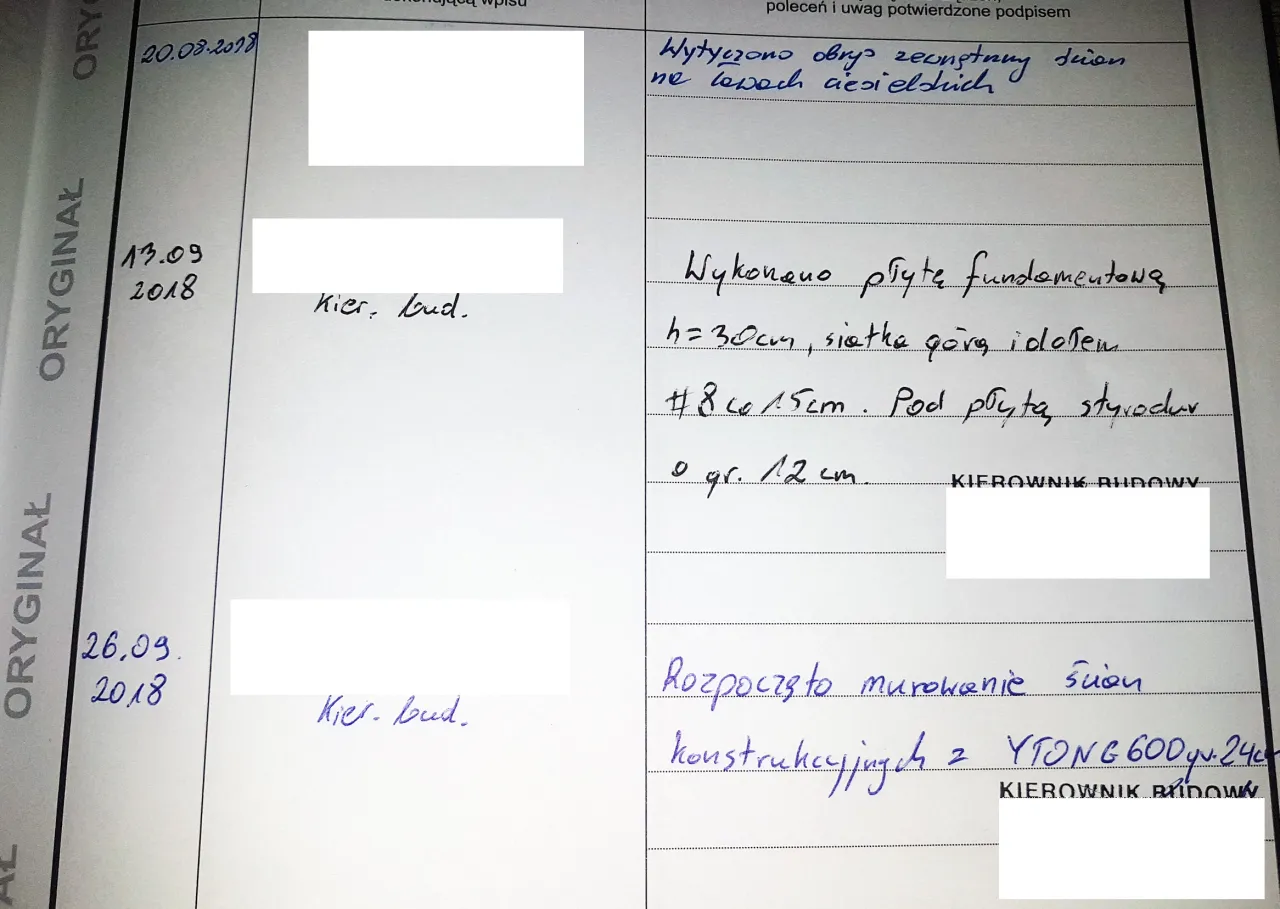 poleceń i uwag potwierdzone podpisem
20.08.2018
Wytyczono obrys zewnętrzny ścian
na ławach ciesielskich
13.09
2018
Kier. bud.
Wykonano płytę fundamentową
h=30cm, siatka górą i dołem
#8 co 15cm. Pod płytą styrodur
o gr. 12 cm.
KIEROWNIK BUDOWY
26.09.
2018
Kier. bud.
Rozpoczęto murowanie ścian
konstrukcyjnych z YTONG 600 gr. 24cm
KIEROWNIK BUDOWY
ORYGINAŁ
ORYGINAŁ